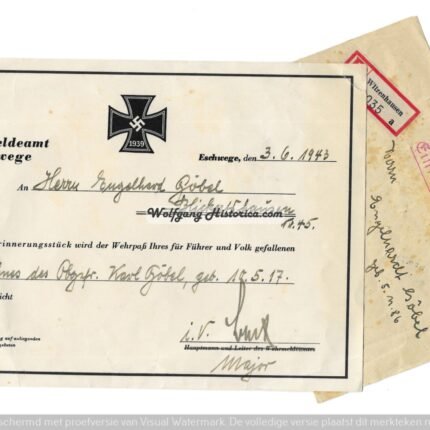 1939
ldeamt
wege
Eschwege, den 3. 6. 1943
An Herrn Engelhard Göbel
Wolfgang Historica.com
Nr. 45.
rinnerungsstück wird der Wehrpaß Ihres für Führer und Volk gefallenen
nes des Obgefr. Karl Göbel, geb. 12.5.17.
icht
i.V.
Hauptmann und Leiter des Wehrmeldeamtes
Major
Witzenhausen
035 a
Herrn
Engelhardt Göbel
schermd met proefversie van Visual Watermark. De volledige versie plaatst dit merkteken n